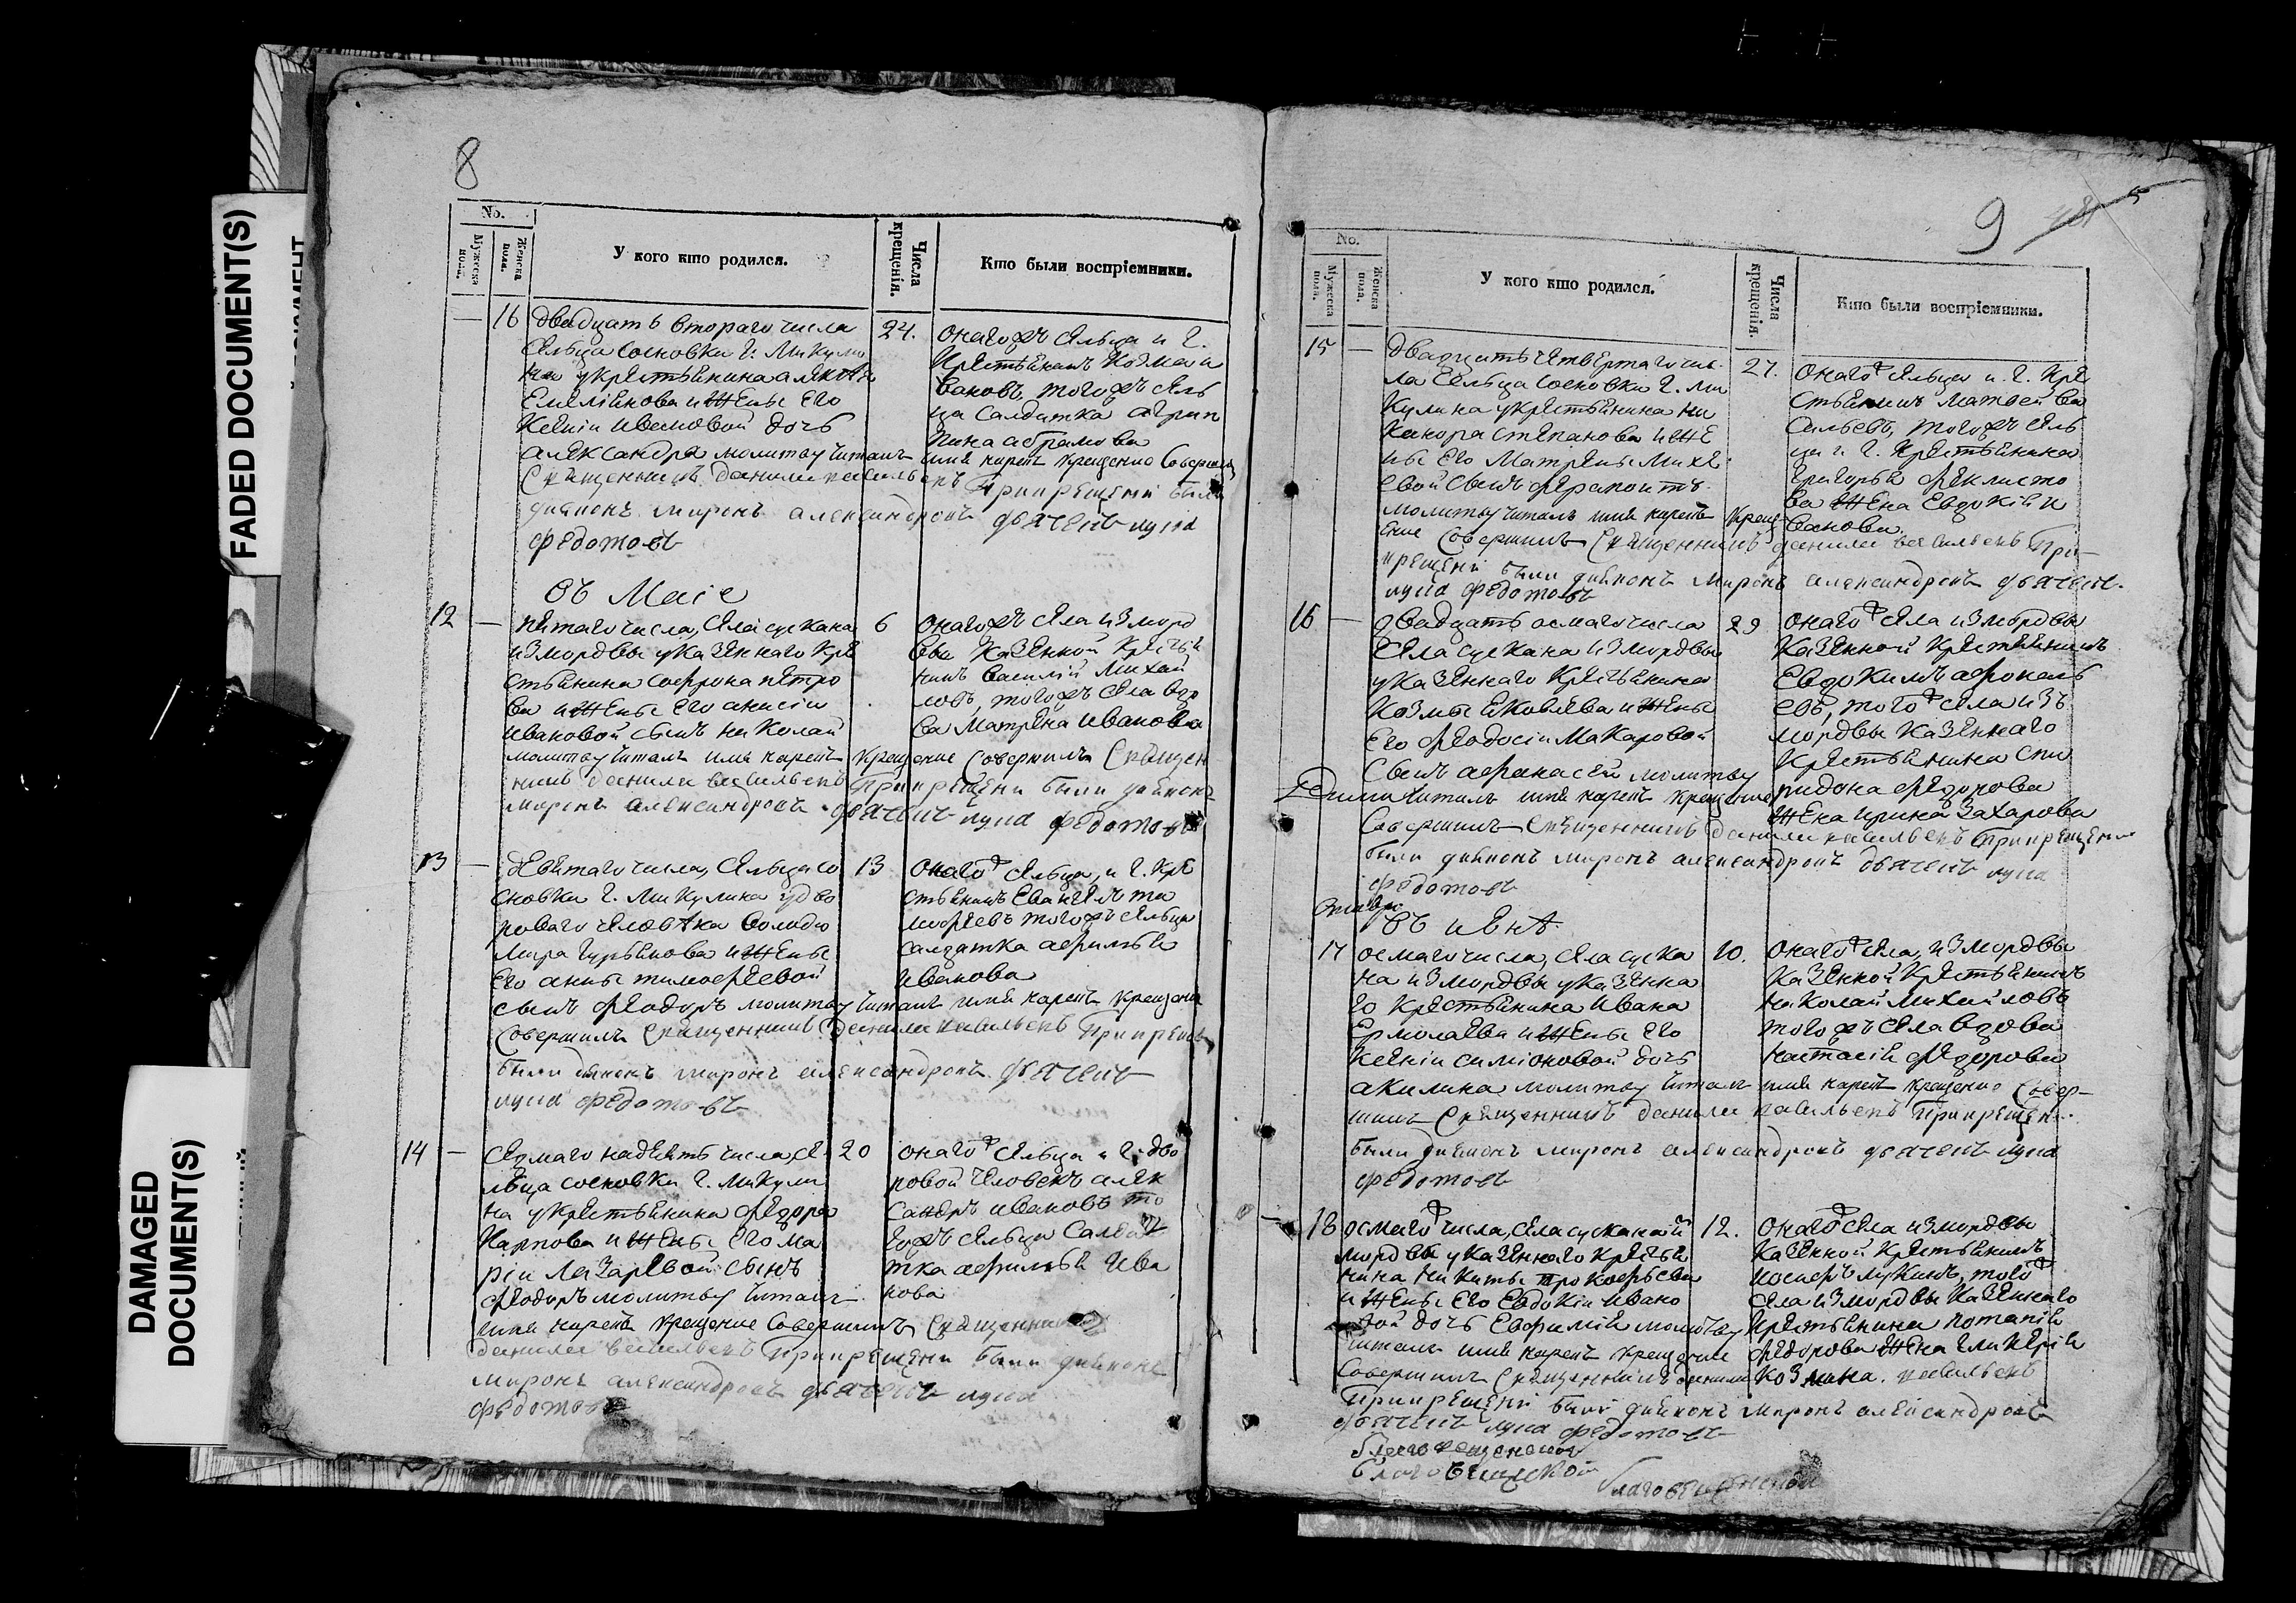 FADED DOCUMENT(S)
DAMAGED
DOCUMENT(S)
8
No.
Мужеска пола.
Женска пола.
У кого кто родился.
Числа крещенія.
Кто были воспріемники.
— 16 двадцать втораго числа
сельца сосновки г: Микули
на у крестьянина алексѣя
Емелiянова и жены его
Ксеніи ивановой дочь
александра молитву читалъ имя нарекъ крещенiе совершилъ
священникъ данила васильевъ при крещенiи были
дияконъ миронъ александровъ дьячекъ лука
федотовъ
24.
онагожъ сельца и г.
крестьянинъ Козма и
вановъ, тогожъ сель
ца салдатка агрип
пина абрамова
въ Маiе
12 —
пятаго числа, села сускана
из мордвы у казеннаго кре
стьянина софрона петро
ва и жены его анисiи
ивановой сынъ николай
молитву читалъ имя нарекъ крещенiе совершилъ священ
никъ данила васильевъ при крещенiи были дияконъ
миронъ александровъ дьячекъ лука федотовъ
6
онагожъ села из морд
вы казенной крестья
нинъ василiй Михай
ловъ, тогожъ села вдо
ва Матрена иванова
13 —
девятаго числа, сельца со
сновки г. Микулина у дво
роваго человѣка володи
мира гурьянова и жены
его анны тимофеевой
сынъ феодоръ молитву читалъ имя нарекъ крещенiе
совершилъ священникъ данила васильевъ при крещенiи
были дияконъ миронъ александровъ дьячекъ
лука федотовъ
13
онагожъ сельца, и г. кре
стьянинъ Евангелъ ти
мофеевъ тогожъ сельца
салдатка афимья
иванова
14 —
седмаго надесять числа, се
льца сосновки г. микули
на у крестьянина федора
Карпова и жены его ма
рiи лазаревой сынъ
феодоръ молитву читалъ
имя нарекъ крещенiе совершилъ священникъ
данила васильевъ при крещенiи были дияконъ
миронъ александровъ дьячекъ лука
федотовъ
20
онагожъ сельца и г. дво
ровой человекъ алек
сандръ ивановъ то
гожъ сельца салда
тка афимья ива
нова
9
No.
Мужеска пола.
Женска пола.
У кого кто родился.
Числа крещенія.
Кто были воспріемники.
15 —
двадцать четвертаго чис
ла сельца сосновки г. ми
кулина у крестьянина ни
канора степанова и же
ны его Матрены михе
евой сынъ ферапонтъ
молитву читалъ имя нарекъ крещ
енiе совершилъ священникъ данила васильевъ при
крещенiи были дияконъ миронъ александровъ дьячекъ
лука федотовъ
27.
онагожъ сельца и г. кре
стьянинъ матвей ва
сильевъ, тогожъ сель
ца и г. крестьянина
григорья феклисто
ва жена Евдокiя и
ванова.
16 —
двадцать осмаго числа
села сускана из мордвы
у казеннаго крестьянина
Козмы яковлева и жены
его феодосiи Макаровой
сынъ афанасей молитву
читалъ имя нарекъ крещенiе
совершилъ священникъ данила васильевъ при крещенiи
были дияконъ миронъ александровъ дьячекъ лука
федотовъ
29
онагожъ села из мордвы
казенной крестьянинъ
Евдокимъ афонась
евъ, тогожъ села изъ
мордвы казеннаго
крестьянина спи
ридона федорова
жена ирина Захарова
въ июнѣ
17
осмаго числа, села суска
на из мордвы у казенна
го крестьянина ивана
Ермолаева и жены его
Ксенiи симiоновой дочь
акилина молитву читалъ имя нарекъ крещенiе совер-
шилъ священникъ данила васильевъ при крещенiи
были дияконъ миронъ александровъ дьячекъ лука
федотовъ
10.
онагожъ села, из мордвы
казенной крестьянинъ
николай михайловъ
тогожъ села вдова
настасiя федорова
— 18
осмагожъ числа, села сускана из
мордвы у казеннаго крестья
нина никиты прокофьева
и жены его Евдокiи ивано
вой дочь Евфимiя молитву
читалъ имя нарекъ крещенiе
совершилъ священникъ данила васильевъ
при крещенiи были дияконъ миронъ александровъ
дьячекъ лука федотовъ
12.
онагожъ села из мордвы
казенной крестьянинъ
иосифъ лукинъ, тогожъ
села из мордвы казеннаго
крестьянина потапiя
федорова жена гликерiя
козмина.
благовещенской